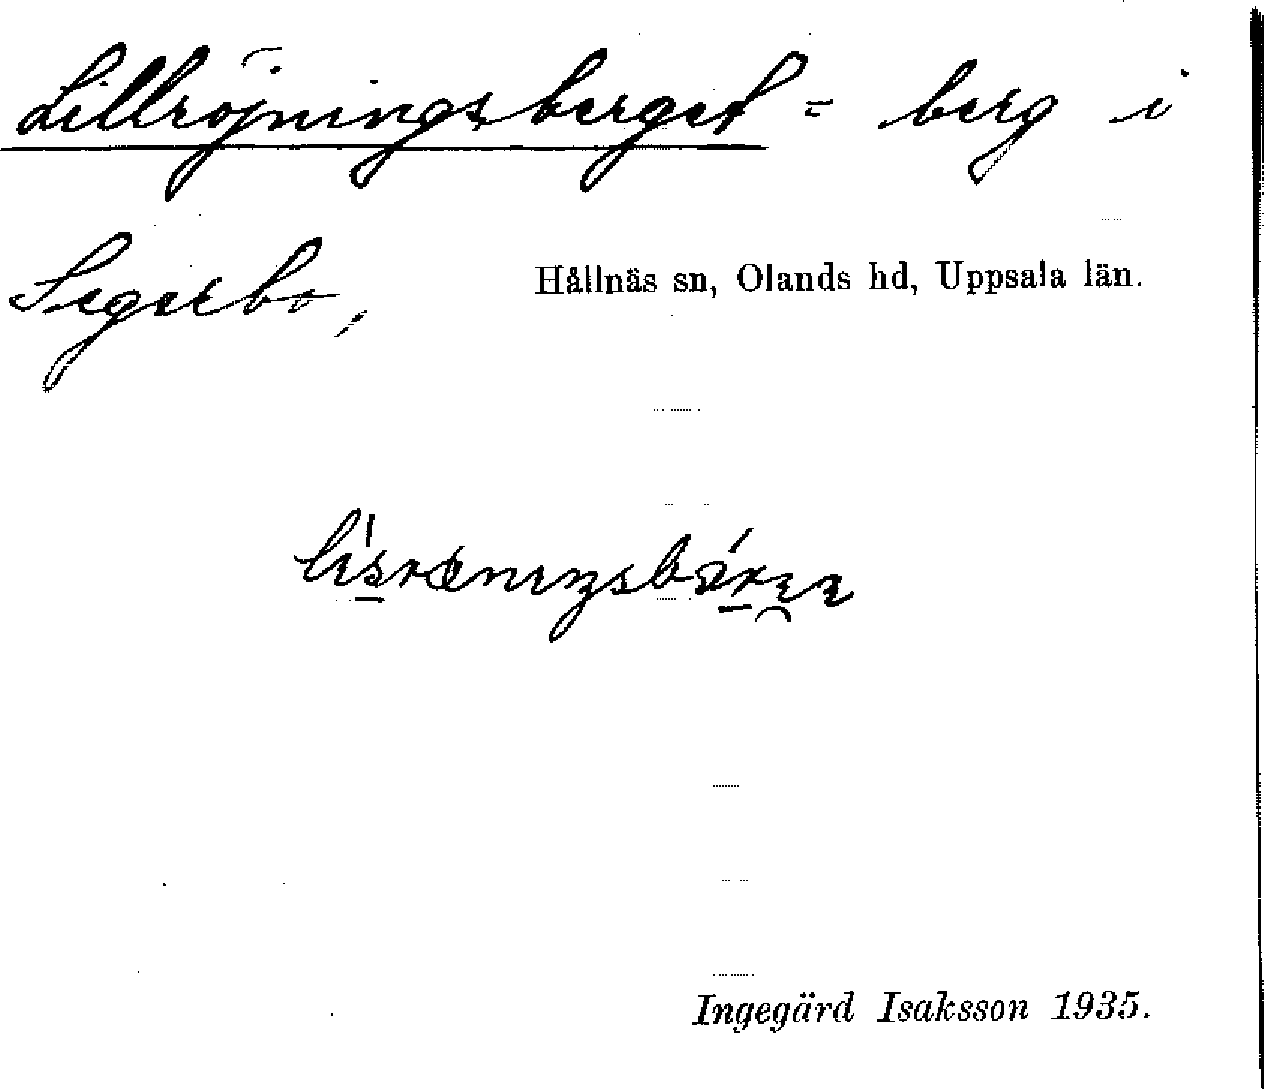 Lillröjningsberget = berg i
Segerbo,
Hållnäs sn, Olands hd, Uppsala län.
Ingegärd Isaksson 1935.